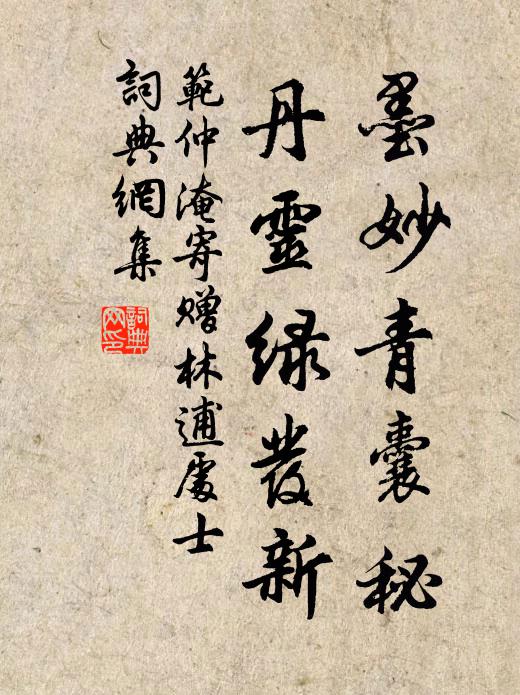 墨妙青囊秘
丹靈綠發新
範仲淹寄贈林逋處士
詞典網集
詞典
网印